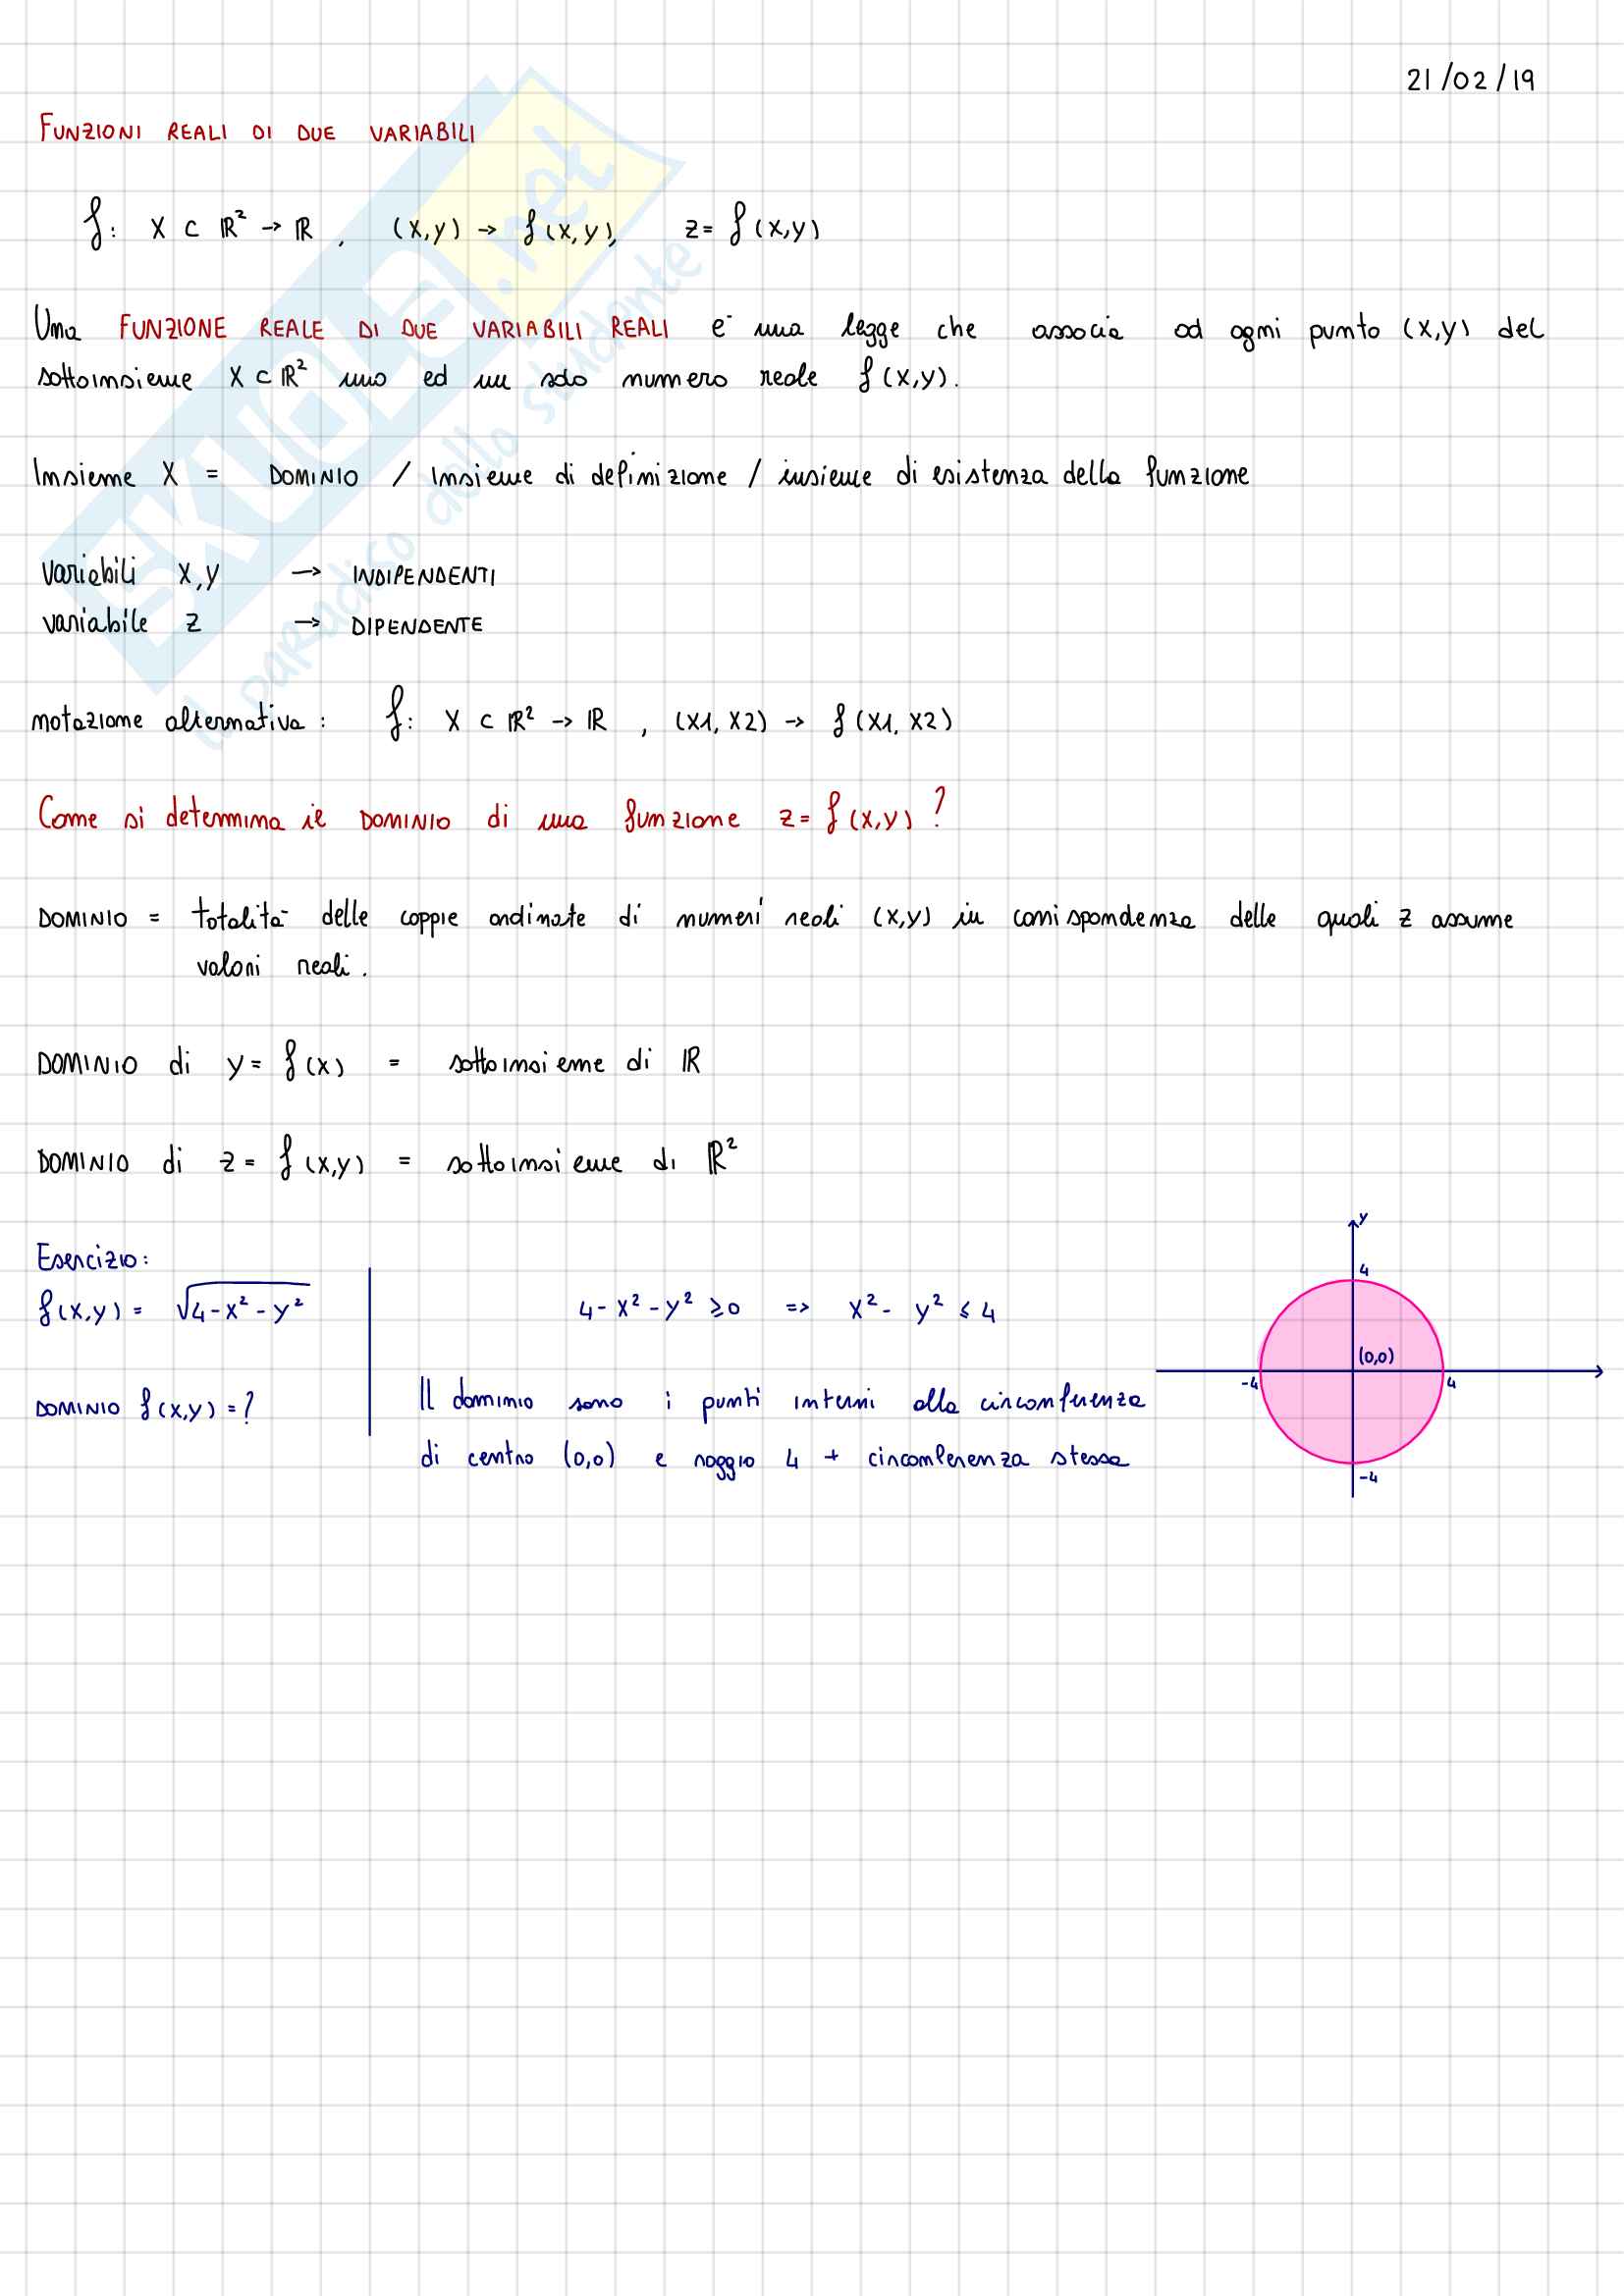 21/02/19
FUNZIONI REALI DI DUE VARIABILI
f: X ⊂ ℝ² → ℝ, (x,y) → f(x,y), z = f(x,y)
Una FUNZIONE REALE DI DUE VARIABILI REALI è una legge che associa ad ogni punto (x,y) del
sottoinsieme X ⊂ ℝ² uno ed un solo numero reale f(x,y).
Insieme X = DOMINIO / Insieme di definizione / insieme di esistenza della funzione
variabili x,y → INDIPENDENTI
variabile z → DIPENDENTE
notazione alternativa: f: X ⊂ ℝ² → ℝ, (x1, x2) → f(x1, x2)
Come si determina il DOMINIO di una funzione z = f(x,y)?
DOMINIO = totalità delle coppie ordinate di numeri reali (x,y) in corrispondenza delle quali z assume
valori reali.
DOMINIO di y = f(x) = sottoinsieme di ℝ
DOMINIO di z = f(x,y) = sottoinsieme di ℝ²
Esercizio:
f(x,y) = √4-x²-y²
DOMINIO f(x,y) = ?
4-x²-y² ≥ 0 => x² - y² ≤ 4
Il dominio sono i punti interni alla circonferenza
di centro (0,0) e raggio 4 + circonferenza stessa
y
4
(0,0)
-4
4
-4
SKUOLA.net
il paradiso dello studente